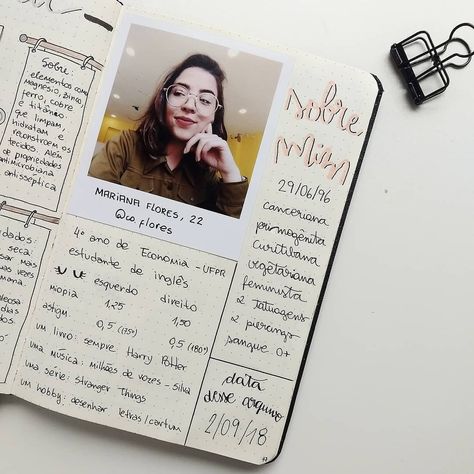 Sobre:
elementos como
magnésio, zinco
ferro, cobre
e titânio.
que limpam,
hidratam e
reconstroem os
tecidos. Além
de propriedades
antimicrobiana
antisséptica
dados:
seca:
sar mais
as vezes
mana.
dias
dos
MARIANA FLORES, 22
@co.flores
4º ano de Economia - UFPR
estudante de inglês
esquerdo direito
miopia 1,25 1,50
astigm. 0,5 (175º) 0,5 (180º)
um livro: sempre Harry Potter
uma música: milhões de vozes - silva
uma série: stranger things
um hobby: desenhar letras/cartum
sobre
mim
29/06/96
canceriana
primogênita
curitibana
vegetariana
feminista
2 tatuagens
2 piercings
sangue O+
data
desse arquivo
2/09/18